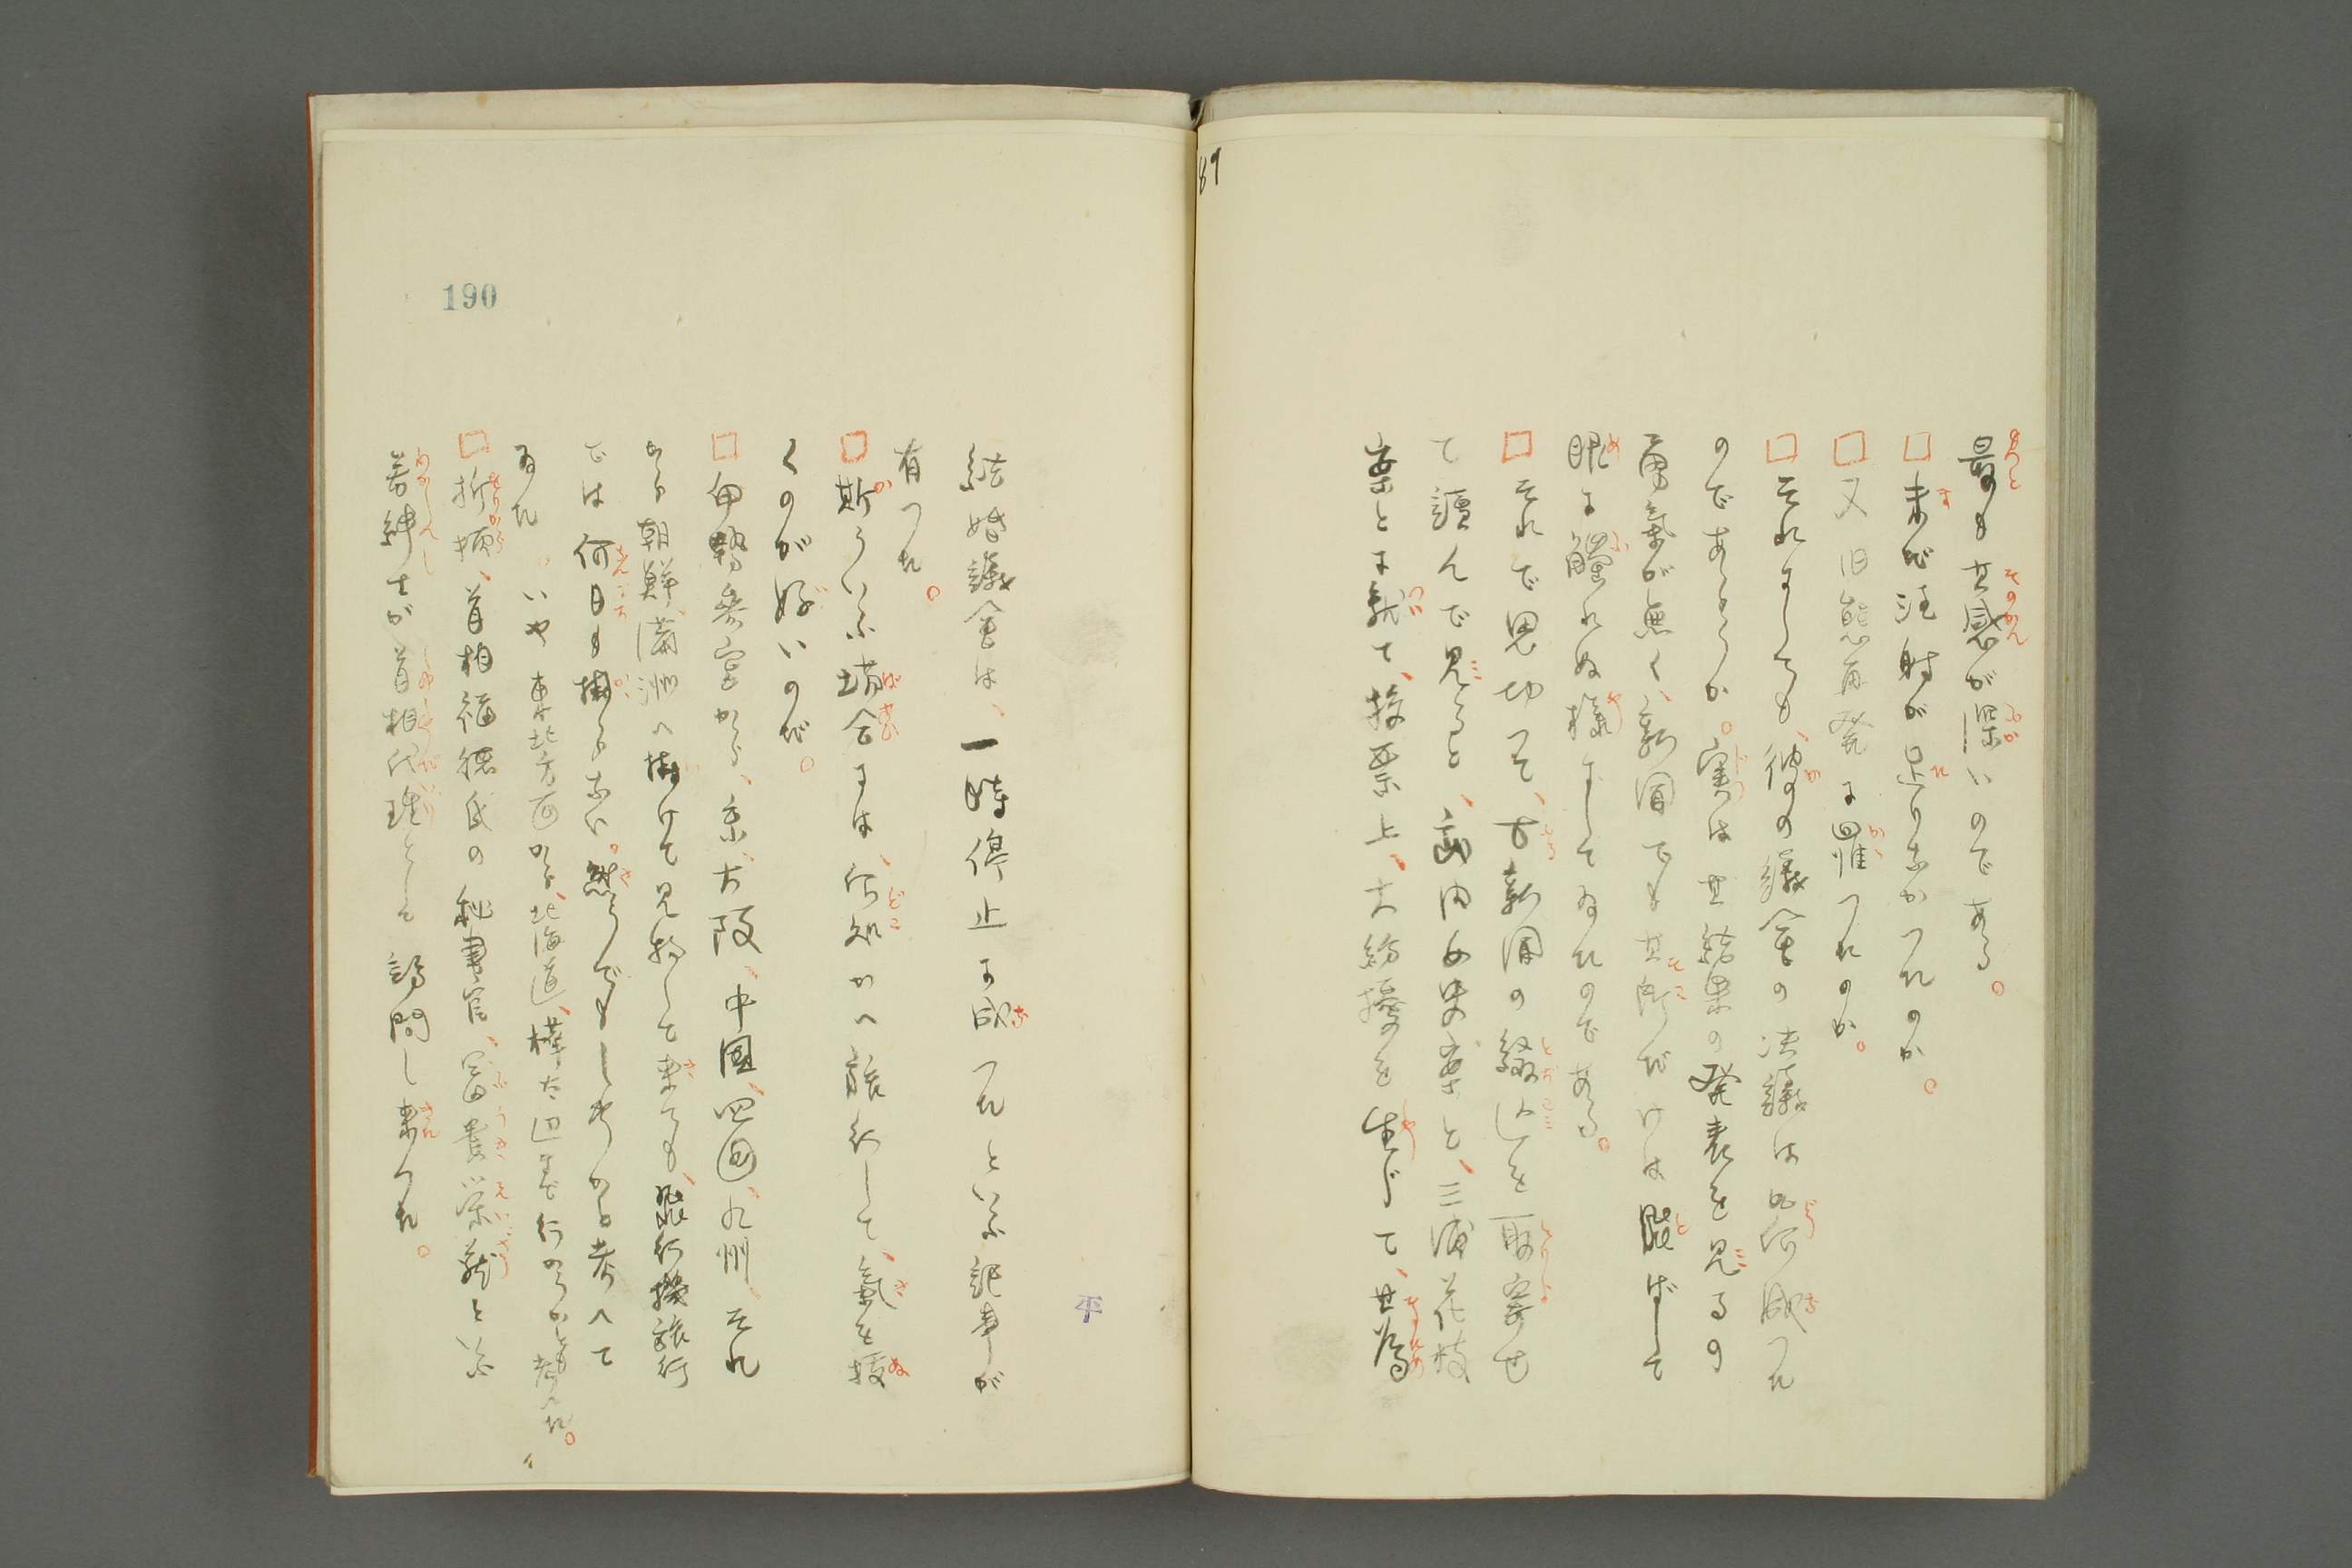 189
最も其感が深いのである。
□未だ注射が足りなかつたのか。
□又旧態再発に罹つたのか。
□それにしても、彼の議会の決議は如何成つた
のであらうか。実は其結果の発表を見るの
勇氣が無く、新聞でも其所だけは飛ばして
眼に觸れぬ様にしてゐたのである。
□それで思切つて、古新聞の綴込を取寄せ
て讀んで見ると、山田女史案と、三浦花枝
案とに就て、投票上、大紛擾を生じて、其為
平
190
結婚議會は、一時停止に成つたといふ記事が
有つた。
□斯ういふ場合には、何処かへ旅行して、氣を拔
くのが好いのだ。
□伊勢参宮から、京、大阪、中國、四国、九州、それ
から朝鮮、満洲へ掛けて見物して来ても、飛行機旅行
では何日も掛らない。然うでもしやうかと考へて
ゐた。いや東北方面から、北海道、樺太辺まで行かうかとも考へた。
□折柄、首相福徳氏の秘書官、富貴栄蔵といふ
若紳士が首相代理として訪問し来つた。